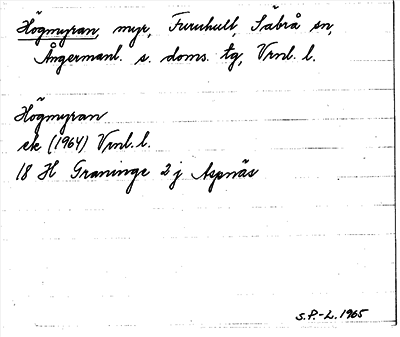 Högmyran, myr, Furuhult, Säbrå sn,
Ångermanl. s. doms. tg, Vrnl. l.
Högmyran
ek (1964) Vrnl. l.
18 H Graninge 2 j Aspnäs
S.P.-L. 1965